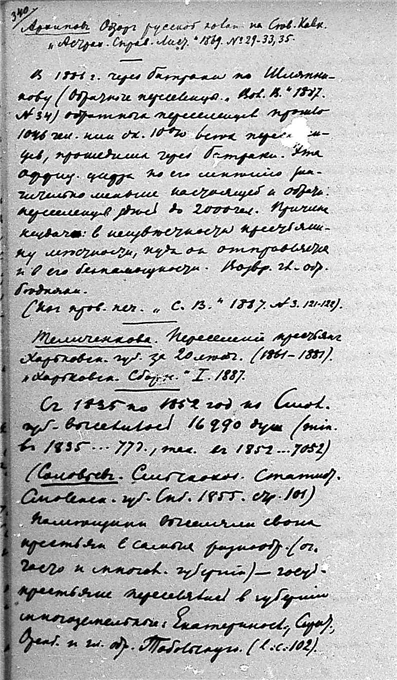 340
Архипов. Обзор русской колон. на Сев. Кавк.
"Астрах. Справ. Лист." 1869. № 29-33, 35.
В 1886 г. через Батраки по Шляпни-
кову (Обратные переселенцы. "Вол. В." 1887.
№ 34) обратных переселенцев прошло
1046 чел. или ок. 10% всех пересел
цев, прошедших через Батраки. Эта
оффиц. цифра по его мнению зна-
чительно меньше настоящей и обратн.
переселенцев до 2000 чел. Причина
неудачи: в неизвестности крестьяни-
ну местности, куда он отправляется
и в его беспомощности. Возвр. гл. обр.
бедняки.
"С. В." 1887. № 3. 121-122).
Теличенкова. Переселения крестьян
Харьковск. губ. за 20 лет. (1861-1881).
"Харьковск. Сборн." I. 1887.
С 1835 по 1852 год из Смол.
губ. выселилось 16990 душ (min.
в 1835 ... 777, max. в 1852 ... 7052)
(Соловьев. Сельскохоз. Статист.
Смоленск. губ. Спб. 1855. стр. 101)
Помещики выселяли своих
крестьян в самыя разнообр. (ог.
часто и многоз. губернии) — госуд.
крестьяне переселялись в губернии
многоземельные: Екатериносл., Сарат.,
Оренб. и гл. обр. Тобольскую. (l. c. 102).